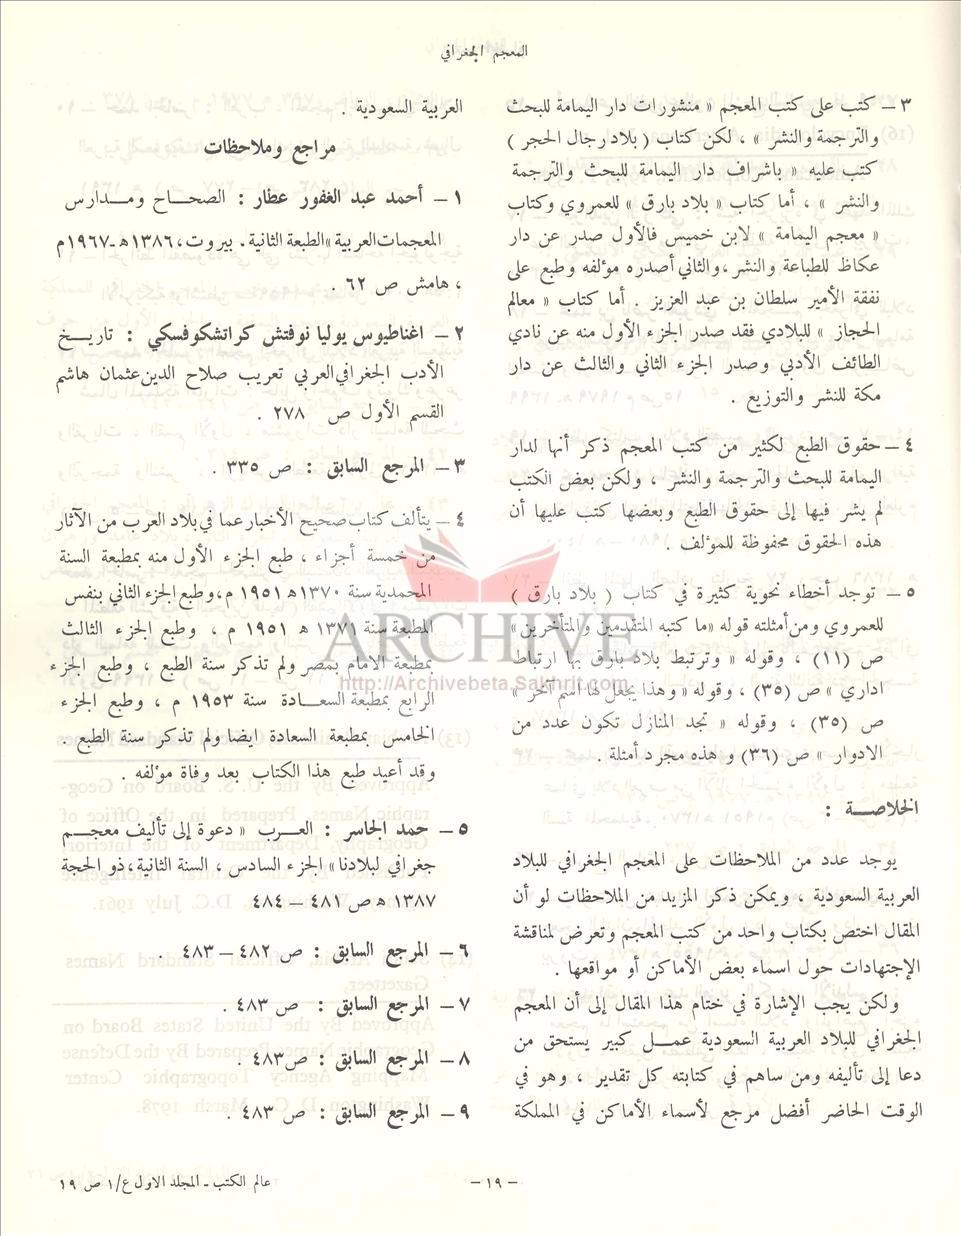 المعجم الجغرافي
٣ – كتب على كتب المعجم « منشورات دار اليمامة للبحث
والترجمة والنشر » ، لكن كتاب ( بلاد رجال الحجر )
كتب عليه « باشراف دار اليمامة للبحث والترجمة
والنشر » ، أما كتاب « بلاد بارق » للعمروي وكتاب
« معجم اليمامة » لابن خميس فالأول صدر عن دار
عكاظ للطباعة والنشر ، والثاني أصدره مؤلفه وطبع على
نفقة الأمير سلطان بن عبد العزيز . أما كتاب « معالم
الحجاز » للبلادي فقد صدر الجزء الأول منه عن نادي
الطائف الأدبي وصدر الجزء الثاني والثالث عن دار
مكة للنشر والتوزيع .
٤ – حقوق الطبع لكثير من كتب المعجم ذكر أنها لدار
اليمامة للبحث والترجمة والنشر ، ولكن بعض الكتب
لم يشر فيها إلى حقوق الطبع وبعضها كتب عليها أن
هذه الحقوق محفوظة للمؤلف .
٥ – توجد أخطاء نحوية كثيرة في كتاب ( بلاد بارق )
للعمروي ومن أمثلته قوله « ما كتبه المتقدمين والمتأخرين »
ص (١١) ، وقوله « وترتبط بلاد بارق بها ارتباط
اداري » ص (٣٥) ، وقوله « وهذا يجعل لها اسم آخر »
ص (٣٥) ، وقوله « تجد المنازل تكون عدد من
الادوار » ص (٣٦) و هذه مجرد أمثلة .
الخلاصــة :
يوجد عدد من الملاحظات على المعجم الجغرافي للبلاد
العربية السعودية ، ويمكن ذكر المزيد من الملاحظات لو أن
المقال اختص بكتاب واحد من كتب المعجم وتعرض لمناقشة
الإجتهادات حول اسماء بعض الأماكن أو مواقعها .
ولكن يجب الإشارة في ختام هذا المقال إلى أن المعجم
الجغرافي للبلاد العربية السعودية عمــل كبير يستحق من
دعا إلى تأليفه ومن ساهم في كتابته كل تقدير ، وهو في
الوقت الحاضر أفضل مرجع لأسماء الأماكن في المملكة
العربية السعودية .
مراجع وملاحظات
١ – أحمد عبد الغفور عطار : الصحــاح ومــدارس
المعجمات العربية » الطبعة الثانية . بيروت ، ١٣٨٦ هـ-١٩٦٧ م
، هامش ص ٦٢ .
٢ – اغناطيوس يوليا نوفتش كراتشكوفسكي : تاريــخ
الأدب الجغرافي العربي تعريب صلاح الدين عثمان هاشم
القسم الأول ص ٢٧٨ .
٣ – المرجع السابق : ص ٣٣٥ .
٤ – يتألف كتاب صحيح الأخبار عما في بلاد العرب من الآثار
من خمسة أجزاء ، طبع الجزء الأول منه بمطبعة السنة
المحمدية سنة ١٣٧٠ ه ١٩٥١ م ، وطبع الجزء الثاني بنفس
المطبعة سنة ١٣٧١ ه ١٩٥١ م ، وطبع الجزء الثالث
بمطبعة الامام بمصر ولم تذكر سنة الطبع ، وطبع الجزء
الرابع بمطبعة السعــادة سنة ١٩٥٣ م ، وطبع الجزء
الخامس بمطبعة السعادة ايضا ولم تذكر سنة الطبع .
وقد أعيد طبع هذا الكتاب بعد وفاة مؤلفه .
٥ – حمد الجاسر : العــرب « دعوة إلى تأليف معجــم
جغرافي لبلادنا » الجزء السادس ، السنة الثانية ، ذو الحجة
١٣٨٧ ه ص ٤٨١ – ٤٨٤
٦ – المرجع السابق : ص ٤٨٢ – ٤٨٣ .
٧ – المرجع السابق : ص ٤٨٣ .
٨ – المرجع السابق : ص ٤٨٣ .
٩ – المرجع السابق : ص ٤٨٣ .
ARCHIVE
http://Archivebeta.Sakhrit.com
– ١٩ –
عالم الكتب - المجلد الاول ع/١ ص ١٩